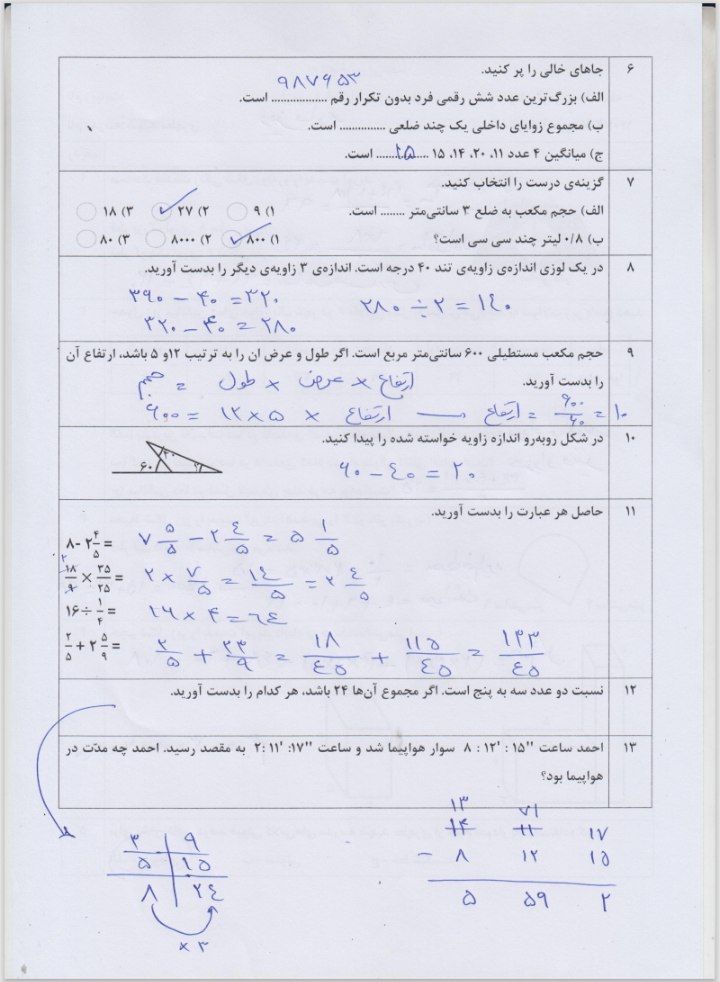 ۶ جاهای خالی را پر کنید.
۹۸۷۶۵۳
الف) بزرگ‌ترین عدد شش رقمی فرد بدون تکرار رقم .................. است.
ب) مجموع زوایای داخلی یک چند ضلعی ............... است.
ج) میانگین ۴ عدد ۱۱، ۲۰، ۱۴، ۱۵ ........ ۱۵ ........ است.
۷ گزینه‌ی درست را انتخاب کنید.
الف) حجم مکعب به ضلع ۳ سانتی‌متر ........ است. ۱) ۹ ۲) ۲۷ ✓ ۳) ۱۸
ب) ۰/۸ لیتر چند سی سی است؟ ۱) ۸۰۰ ✓ ۲) ۸۰۰۰ ۳) ۸۰
۸ در یک لوزی اندازه‌ی زاویه‌ی تند ۴۰ درجه است. اندازه‌ی ۳ زاویه‌ی دیگر را بدست آورید.
۳۶۰ - ۴۰ = ۳۲۰
۲۸۰ ÷ ۲ = ۱۴۰
۳۲۰ - ۴۰ = ۲۸۰
۹ حجم مکعب مستطیلی ۶۰۰ سانتی‌متر مربع است. اگر طول و عرض ان را به ترتیب ۱۲و ۵ باشد، ارتفاع آن
را بدست آورید.
ارتفاع × عرض × طول = حجم
۶۰۰ = ۱۲×۵ × ارتفاع → ارتفاع = ۶۰۰/۶۰ = ۱۰
۱۰ در شکل روبه‌رو اندازه زاویه خواسته شده را پیدا کنید.
۶۰
۶۰ - ۴۰ = ۲۰
۱۱ حاصل هر عبارت را بدست آورید.
۸- ۲ ۴/۵ = ۷ ۵/۵ - ۲ ۴/۵ = ۵ ۱/۵
۲
۱۸/۹ × ۳۵/۲۵ = ۲ × ۷/۵ = ۱۴/۵ = ۲ ۴/۵
۱۶ ÷ ۱/۴ = ۱۶ × ۴ = ۶۴
۲/۵ + ۲ ۵/۹ = ۲/۵ + ۲۳/۹ = ۱۸/۴۵ + ۱۱۵/۴۵ = ۱۳۳/۴۵
۱۲ نسبت دو عدد سه به پنج است. اگر مجموع آن‌ها ۲۴ باشد، هر کدام را بدست آورید.
۱۳ احمد ساعت "۱۵ : '۱۲ : ۸ سوار هواپیما شد و ساعت "۱۷: '۱۱ :۲ به مقصد رسید. احمد چه مدّت در
هواپیما بود؟
۱۳ ۷۱
۱۴ ۱۱ ۱۷
- ۸ ۱۲ ۱۵
۵ ۵۹ ۲
۳ ۹
۵ ۱۵
۸ ۲۴
× ۳